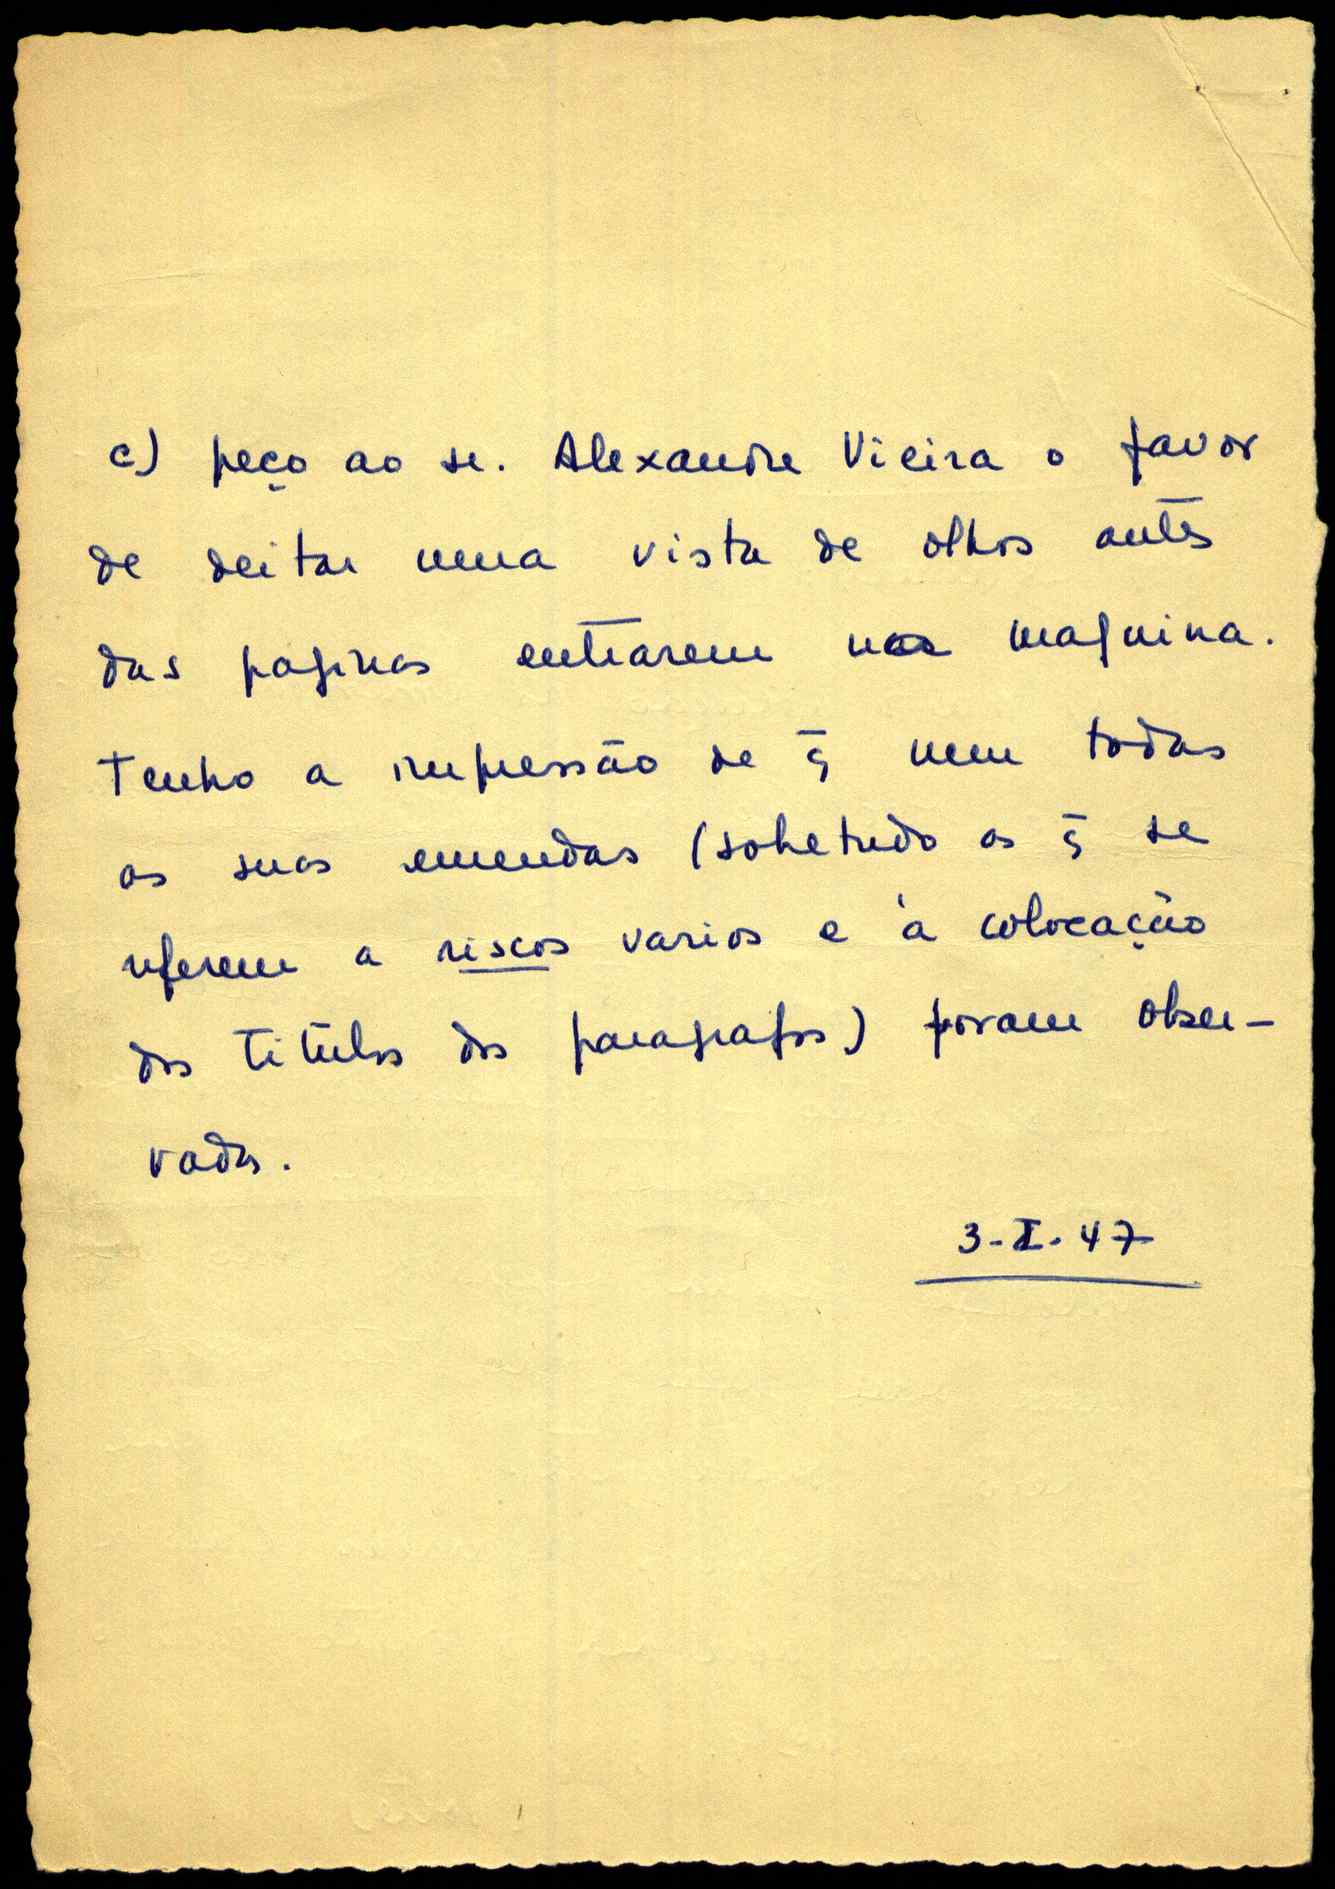 c) peço ao sr. Alexandre Vieira o favor
de deitar uma vista de olhos antes
das paginas entrarem na maquina.
Tenho a impressão de q̄ nem todas
as suas emendas (sobretudo as q̄ se
referem a riscos varios e à colocação
dos titulos dos paragrafos) foram obser-
vadas.
3-I-47